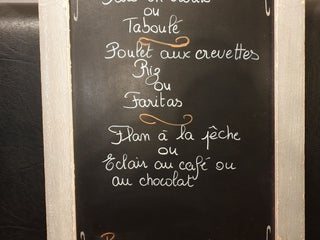 ou
Taboulé
Poulet aux crevettes
Riz
ou
Faritas
Flan à la pêche
ou
Eclair au café ou
au chocolat